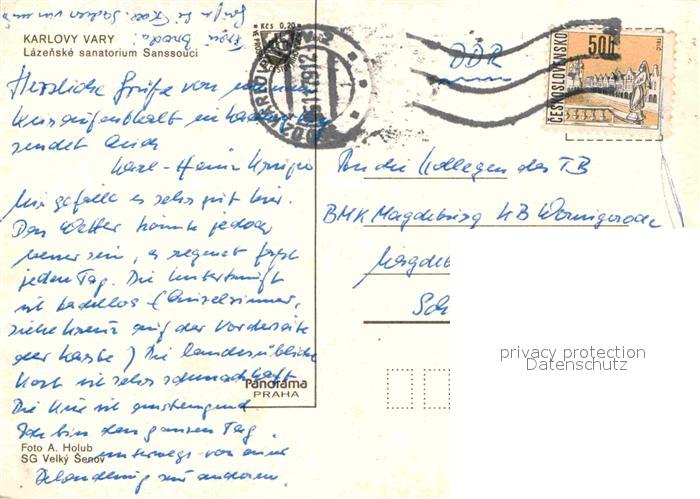 KARLOVY VARY
Lázeňské sanatorium Sanssouci
Kčs 0,20
ČESKOSLOVENSKO
50h
DDR
Herzliche Grüße von meinem
Kuraufenthalt in Karlovy Vary
sendet Euch
Karl-Heinz
Mir gefällt es sehr gut hier.
Das Wetter könnte jedoch
besser sein, es regnet fast
jeden Tag. Die Unterkunft
ist tadellos (Einzelzimmer,
siehe Kreuz auf der Vorderseite
der Karte) Die landesübliche
Kost ist sehr schmackhaft
Die Kur ist anstrengend
Ich bin den ganzen Tag
unterwegs von einer
Behandlung zur anderen.
An die Kollegen des TB
BMK Magdeburg KB Wernigerode
Magdeb
Sch
privacy protection
Datenschutz
Panorama
PRAHA
Foto A. Holub
SG Velký Šenov